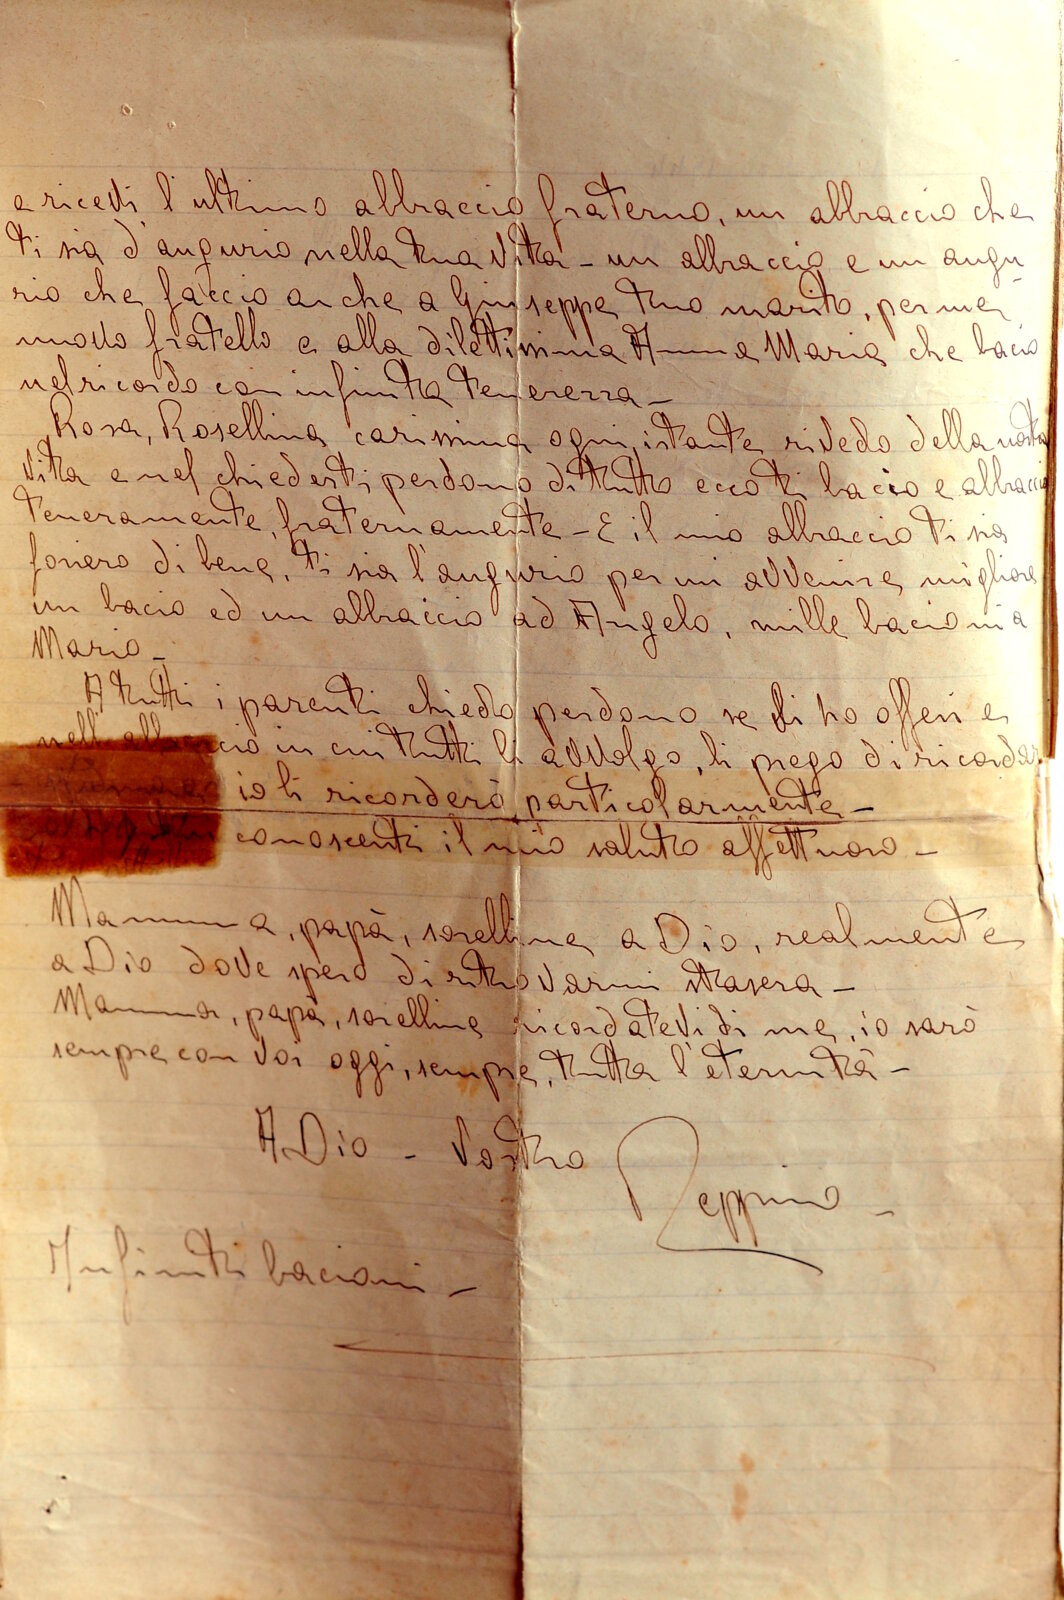 e ricevi l'ultimo abbraccio fraterno, un abbraccio che
ti sia d'augurio nella tua vita - un abbraccio e un augu-
rio che faccio anche a Giuseppe tuo marito, per me
nuovo fratello e alla dilettissima Anna Maria che bacio
nel ricordo con infinita tenerezza -
Rosa, Rosellina carissima ogni istante rivedo della nostra
vita e nel chiederti perdono di tutto eccoti bacio e abbraccio
teneramente, fraternamente - E il mio abbraccio ti sia
foriero di bene, ti sia l'augurio per un avvenire migliore
un bacio ed un abbraccio ad Angelo, mille bacioni a
Mario -
A tutti i parenti chiedo perdono se li ho offesi e
nell'abbraccio in cui tutti li avvolgo, li prego di ricordar
io li ricorderò particolarmente -
conoscenti il mio saluto affettuoso -
Mamma, papà, sorelline a Dio, realmente
a Dio dove spero di ritrovarmi stasera -
Mamma, papà, sorelline ricordatevi di me, io sarò
sempre con voi oggi, sempre, tutta l'eternità -
A Dio - Vostro
Peppino -
Infiniti bacioni -